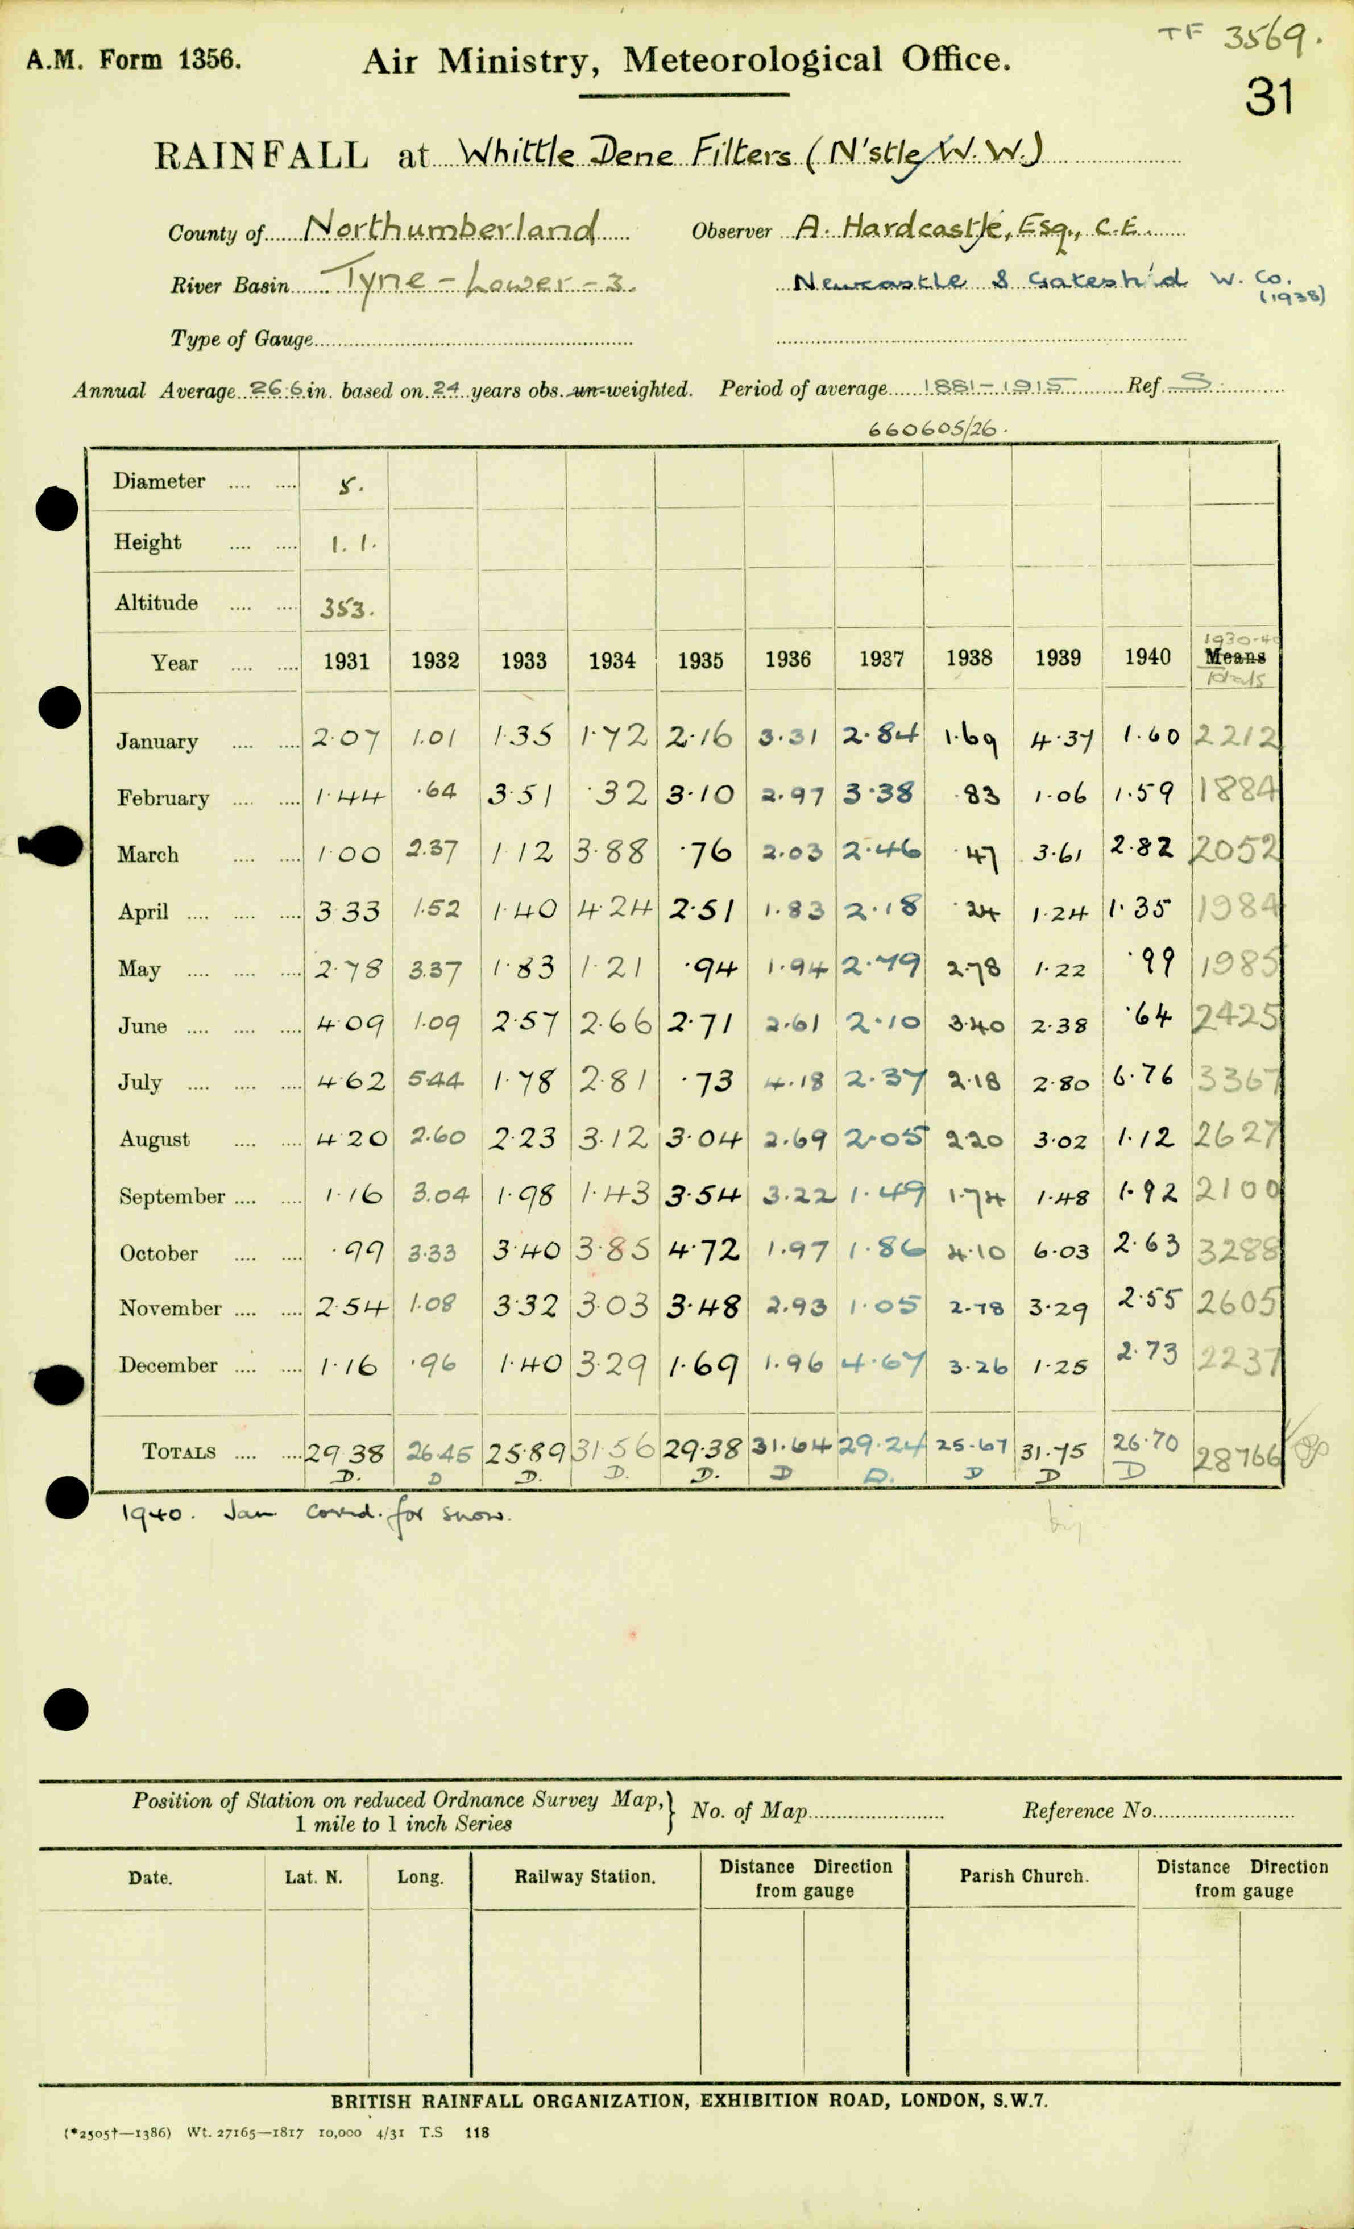 TF 3569.
A.M. Form 1356. Air Ministry, Meteorological Office.
31
RAINFALL at Whittle Dene Filters (N'stle W.W.)
County of Northumberland Observer A. Hardcastle, Esq., C.E.
River Basin Tyne - Lower - 3. Newcastle & Gatesh'd W. Co.
(1938)
Type of Gauge
Annual Average 26.6 in. based on 24 years obs. un-weighted. Period of average 1881-1915 Ref. S.
660605/26.
Diameter 5.
Height 1.1.
Altitude 353.
1930-40
Year 1931 1932 1933 1934 1935 1936 1937 1938 1939 1940 Means
Totals
January 2.07 1.01 1.35 1.72 2.16 3.31 2.84 1.69 4.37 1.60 2212
February 1.44 .64 3.51 .32 3.10 2.97 3.38 .83 1.06 1.59 1884
March 1.00 2.37 1.12 3.88 .76 2.03 2.46 .47 3.61 2.82 2052
April 3.33 1.52 1.40 4.24 2.51 1.83 2.18 .24 1.24 1.35 1984
May 2.78 3.37 1.83 1.21 .94 1.94 2.79 2.78 1.22 .99 1985
June 4.09 1.09 2.57 2.66 2.71 2.61 2.10 3.40 2.38 .64 2425
July 4.62 5.44 1.78 2.81 .73 4.18 2.37 2.18 2.80 6.76 3367
August 4.20 2.60 2.23 3.12 3.04 2.69 2.05 2.20 3.02 1.12 2627
September 1.16 3.04 1.98 1.43 3.54 3.22 1.49 1.74 1.48 1.92 2100
October .99 3.33 3.40 3.85 4.72 1.97 1.86 4.10 6.03 2.63 3288
November 2.54 1.08 3.32 3.03 3.48 2.93 1.05 2.78 3.29 2.55 2605
December 1.16 .96 1.40 3.29 1.69 1.96 4.67 3.26 1.25 2.73 2237
TOTALS 29.38 26.45 25.89 31.56 29.38 31.64 29.24 25.67 31.75 26.70 28766
D. D D. D. D. D D. D D D
1940. Jan corrd. for snow.
Position of Station on reduced Ordnance Survey Map, } No. of Map Reference No.
1 mile to 1 inch Series
Date. Lat. N. Long. Railway Station. Distance Direction from gauge Parish Church. Distance Direction from gauge
BRITISH RAINFALL ORGANIZATION, EXHIBITION ROAD, LONDON, S.W.7.
(*2505†—1386) Wt. 27165—1817 10,000 4/31 T.S 118